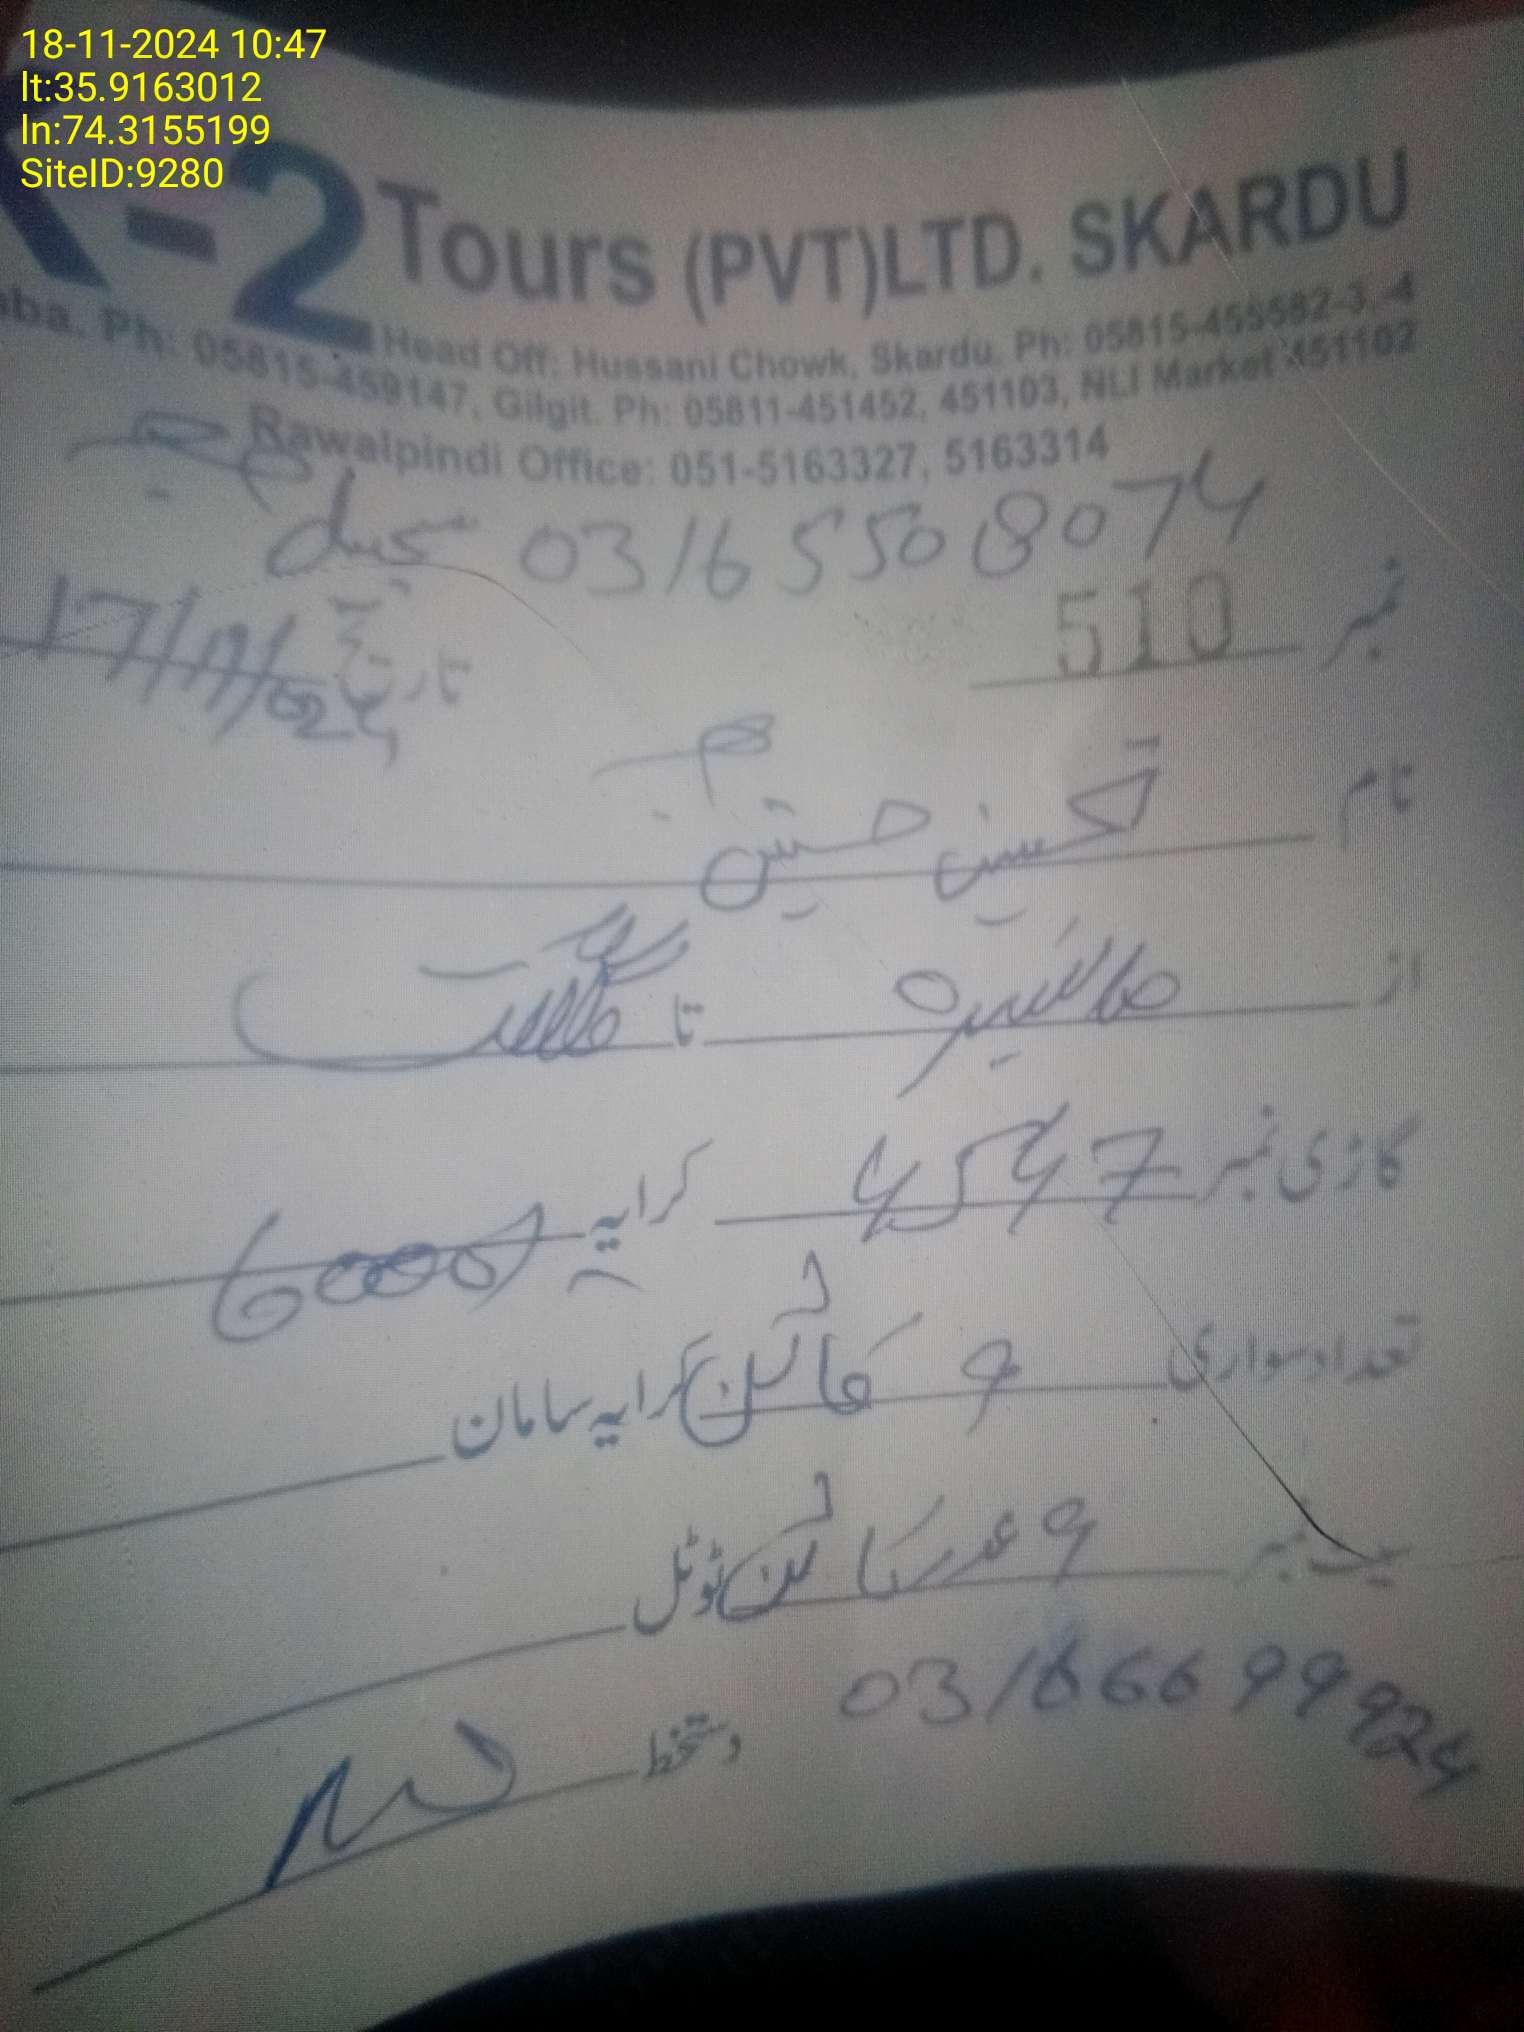 18-11-2024 10:47
lt:35.9163012
ln:74.3155199
SiteID:9280
K-2 Tours (PVT)LTD. SKARDU
Head Off: Hussani Chowk, Skardu. Ph: 05815-455582-3,-4
aba. Ph: 05815-459147, Gilgit. Ph: 05811-451452, 451103, NLI Market 451102
Rawalpindi Office: 051-5163327, 5163314
03165508074
نمبر 510 تاریخ 17/11/024
نام تحسین حسین
از مانسہرہ تا گلگت
گاڑی نمبر 4547 کرایہ 6000
تعداد سواری 9 کاٹن کرایہ سامان
سیٹ نمبر 9 عدد کاٹن ٹوٹل
03166699924
دستخط